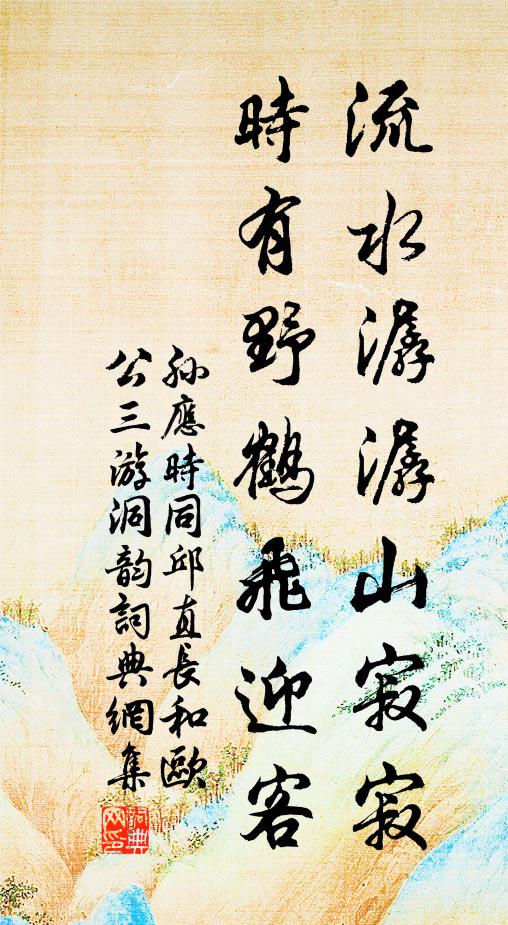 流水潺潺山寂寂
時有野鶴飛迎客
孫應時同邱直長和歐
公三游洞韵詞典網集
詞典網印